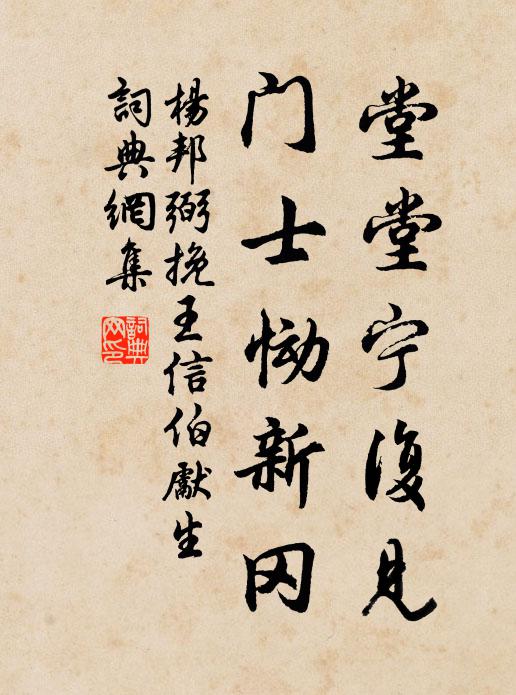 堂堂宁復見
门士恸新冈
楊邦弼挽王信伯獻生
詞典網集
詞典
网印